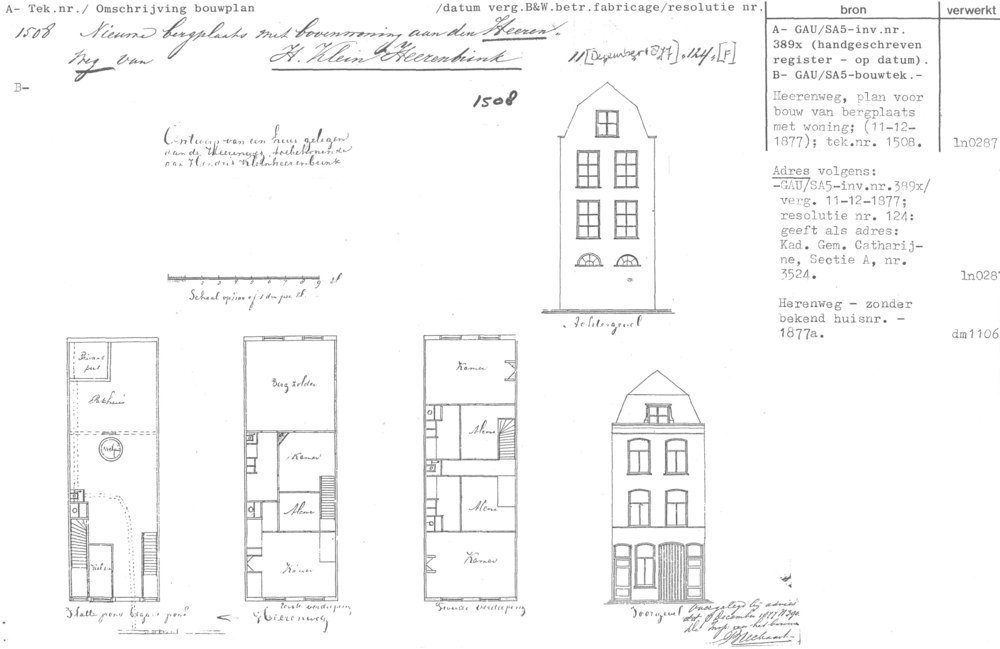 A- Tek.nr./ Omschrijving bouwplan /datum verg.B&W.betr.fabricage/resolutie nr.
1508 Nieuwe bergplaats met bovenwoning aan den Heeren-
weg van H. Klein Heerenbrink 11 [December 1877], 124, [P]
B-
1508
Ontwerp van een huis gelegen
aan de Heerenweg, toebehoorende
aan Hendrik Kleinheerenbrink
1 2 3 4 5 6 7 8 9
Schaal
Achtergevel
Pakhuis
Berg zolder
Kamer
Alcove
Kamer
Kamer
Alcove
Alcove
Kamer
Eerste verdieping
Heerenweg
Tweede verdieping
Voorgevel
bron
verwerkt
A- GAU/SA5-inv.nr.
389x (handgeschreven
register - op datum).
B- GAU/SA5-bouwtek.-
Heerenweg, plan voor
bouw van bergplaats
met woning; (11-12-
1877); tek.nr. 1508. ln0287
Adres volgens:
-GAU/SA5-inv.nr.389x/
verg. 11-12-1877;
resolutie nr. 124:
geeft als adres:
Kad. Gem. Catharij-
ne, Sectie A, nr.
3524. ln0287
Herenweg - zonder
bekend huisnr. -
1877a. dm1106